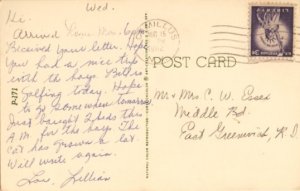 Wed.
Hi -
Arrived Mon. 6 pm
Received your letter. Hope
you had a nice trip
with the boys. Bob is
golfing today. Hope
to go somewhere tomorrow
Just bought 2 beds this
A.M. for the boys. The
cat has grown a lot
Will write again.
Love, Lillian
P-171
POST CARD
MILLIS
DEC 15
LIBERTY
3¢
Mr + Mrs C. W. Essex
Middle Rd.
East Greenwich, R I